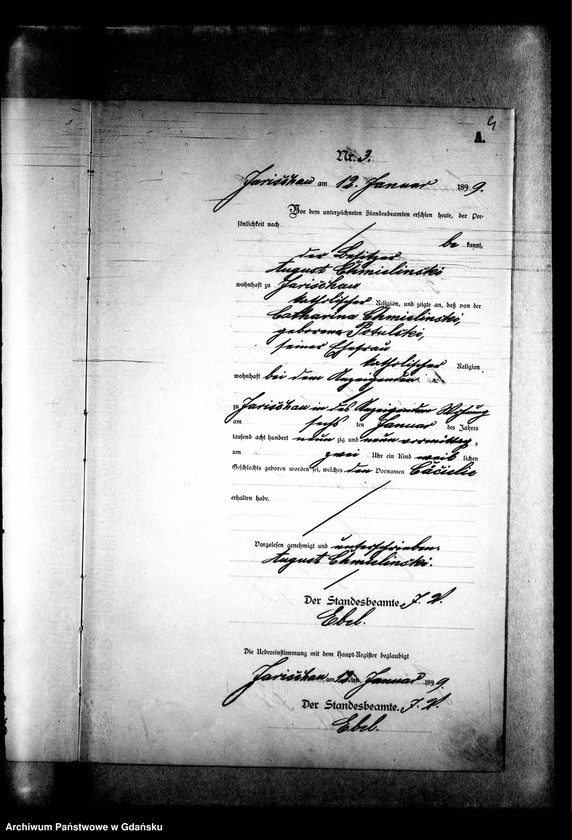 4
A.
Nr. 3.
Jarischau am 12. Januar 1899.
Vor dem unterzeichneten Standesbeamten erschien heute, der Per-
sönlichkeit nach
be kannt,
der Besitzer
August Chmielinski
wohnhaft zu Jarischau
katholischer Religion, und zeigte an, daß von der
Catharina Chmielinski,
geborene Potulski,
seiner Ehefrau
katholischer Religion
wohnhaft bei dem Anzeigenden
zu Jarischau in des Anzeigenden Wohnung
am sechs ten Januar des Jahres
tausend acht hundert neun zig und neun vormittags
um zwei Uhr ein Kind weib lichen
Geschlechts geboren worden sei, welches den Vornamen Cäcielie
erhalten habe.
Vorgelesen genehmigt und unterschrieben.
August Chmielinski.
Der Standesbeamte. J. V.
Ebel.
Die Uebereinstimmung mit dem Haupt-Register beglaubigt
Jarischau am 12. ten Januar 1899.
Der Standesbeamte. J. V.
Ebel.
Archiwum Państwowe w Gdańsku